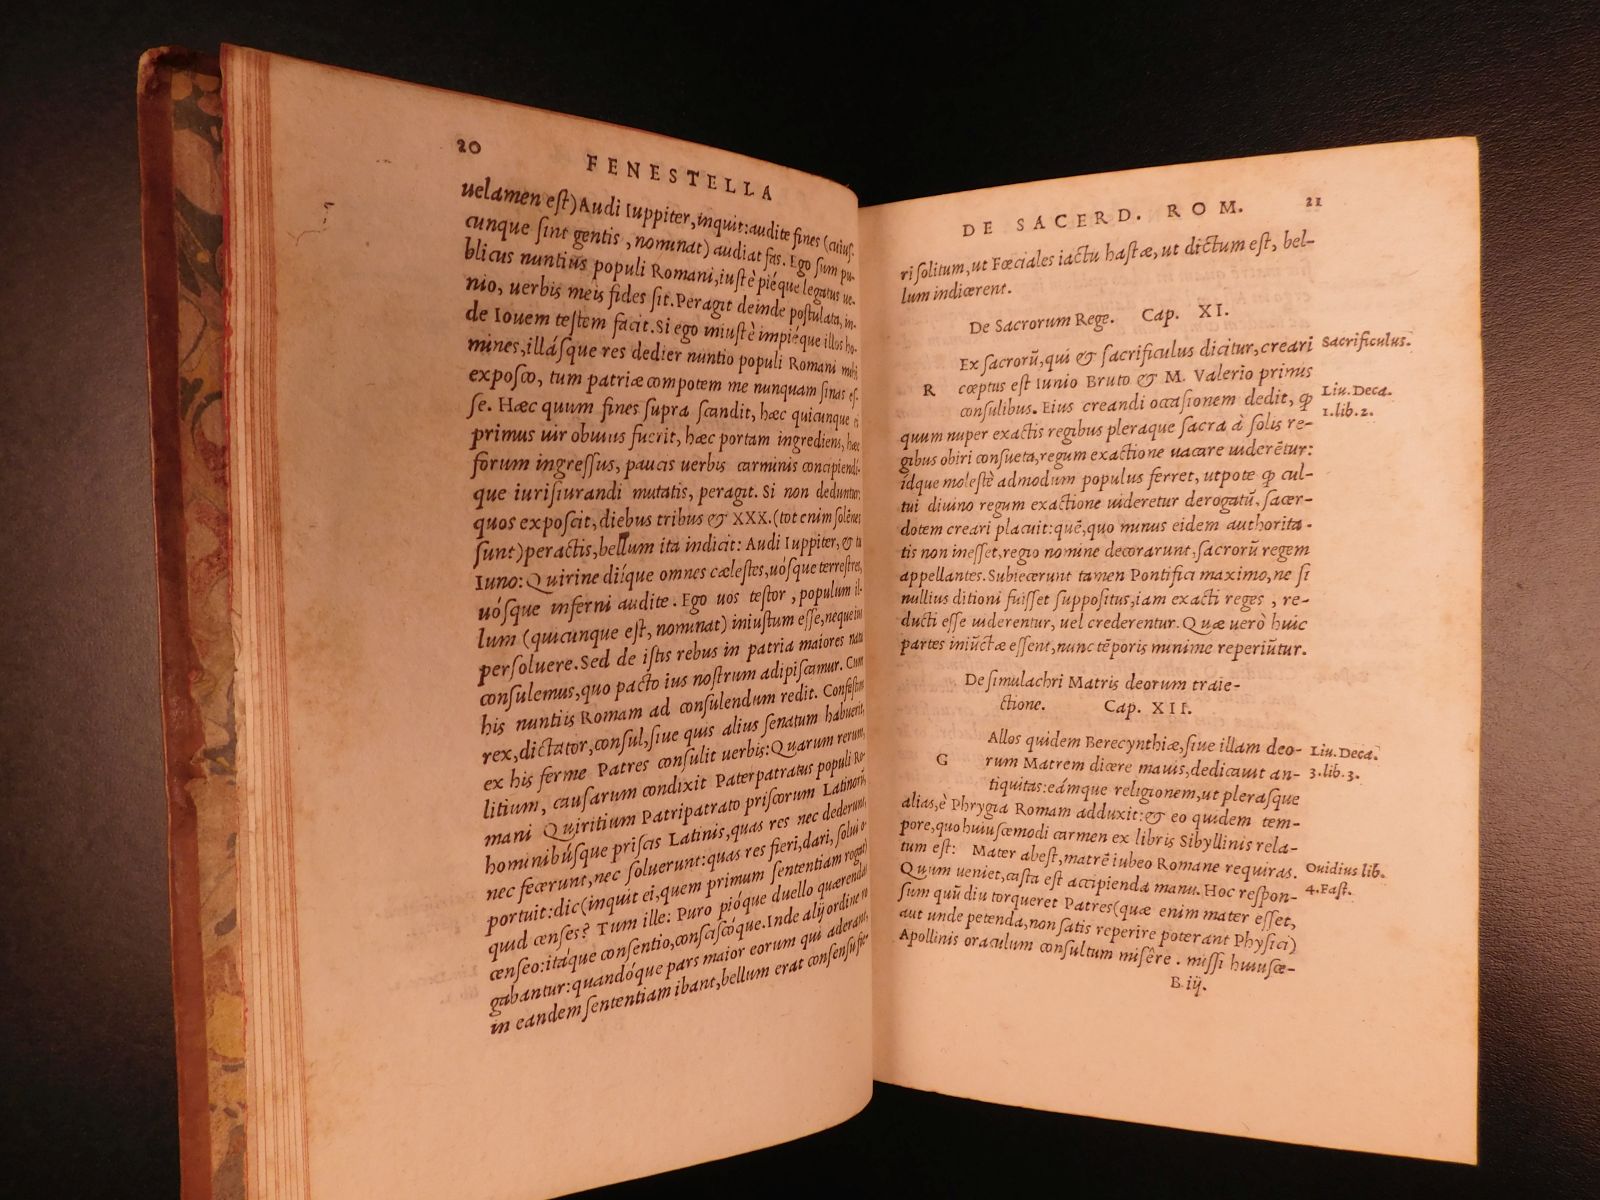 20
FENESTELLA
uelamen est) Audi Iuppiter, inquit: audite fines (cuius-
cunque sint gentis, nominat) audiat fas. Ego sum pu-
blicus nuntius populi Romani, iustè piéque legatus ue-
nio, uerbis meis fides sit. Peragit deinde postulata, in-
de Iouem testem facit. Si ego iniustè impiéque illos ho-
mines, illásque res dedier nuntio populi Romani mihi
exposco, tum patriæ compotem me nunquam sinas es-
se. Hæc quum fines supra scandit, hæc quicunque ei
primus uir obuius fuerit, hæc portam ingrediens, hæc
forum ingressus, paucis uerbis carminis concipiendi-
que iurisiurandi mutatis, peragit. Si non deduntur
quos exposcit, diebus tribus & XXX. (tot enim solēnes
sunt) peractis, bellum ita indicit: Audi Iuppiter, & tu
Iuno: Quirine diíque omnes cælestes, uósque terrestres,
uósque inferni audite. Ego uos testor, populum il-
lum (quicunque est, nominat) iniustum esse, neque ius
persoluere. Sed de istis rebus in patria maiores natu
consulemus, quo pacto ius nostrum adipiscamur. Cum
his nuntiis Romam ad consulendum redit. Confestim
rex, dictator, consul, siue quis alius senatum habuerit,
ex his ferme Patres consulit uerbis: Quarum rerum,
litium, causarum condixit Paterpatratus populi Ro-
mani Quiritium Patripatrato priscorum Latinorū,
hominibúsque priscis Latinis, quas res nec dederunt,
nec fecerunt, nec soluerunt: quas res fieri, dari, solui o-
portuit: dic (inquit ei, quem primum sententiam rogat)
quid censes? Tum ille: Puro pióque duello quærendas
censeo: itáque consentio, consciscóque. Inde alij ordine ro
gabantur: quandóque pars maior eorum qui aderant,
in eandem sententiam ibant, bellum erat consensū fie-
DE SACERD. ROM. 21
ri solitum, ut Fœciales iactu hastæ, ut dictum est, bel-
lum indicerent.
De Sacrorum Rege. Cap. XI.
R Ex sacrorū, qui & sacrificulus dicitur, creari Sacrificulus.
cœptus est Iunio Bruto & M. Valerio primis
consulibus. Eius creandi occasionem dedit, ꝙ Liu. Deca. 1. lib. 2.
quum nuper exactis regibus pleraque sacra à solis re-
gibus obiri consueta, regum exactione uacare uiderētur:
idque molestè admodum populus ferret, utpote ꝙ cul-
tui diuino regum exactione uideretur derogatū, sacer-
dotem creari placuit: quē, quo minus eidem authorita-
tis non inesset, regio nomine decorarunt, sacrorū regem
appellantes. Subiecerunt tamen Pontifici maximo, ne si
nullius ditioni fuisset suppositus, iam exacti reges, re-
ducti esse uiderentur, uel crederentur. Quæ uerò huic
partes iniūctæ essent, nunc tēporis minime reperiūtur.
De simulachri Matris deorum traie-
ctione. Cap. XII.
G Allos quidem Berecynthiæ, siue illam deo- Liu. Deca.
rum Matrem dicere mauis, dedicauit an- 3. lib. 3.
tiquitas: eámque religionem, ut plerasque
alias, è Phrygia Romam adduxit: & eo quidem tem-
pore, quo huiuscemodi carmen ex libris Sibyllinis rela-
tum est: Mater abest, matrē iubeo Romane requiras. Ouidius lib.
Quum ueniet, casta est accipienda manu. Hoc respon- 4. Fast.
sum quū diu torqueret Patres (quæ enim mater esset,
aut unde petenda, non satis reperire poterant Physici)
Apollinis oraculum consultum misêre. missi huiusce-
B iij.